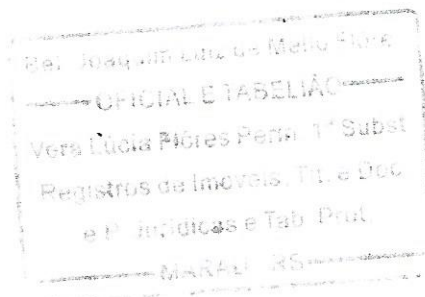 Bel. Joaquim Luiz de Mello Flore
OFICIAL E TABELIÃO
Vera Lúcia Flôres Penn 1ª Subst
Registros de Imóveis, Tit. e Doc
e P. Jurídicas e Tab. Prot.
MARAU - RS